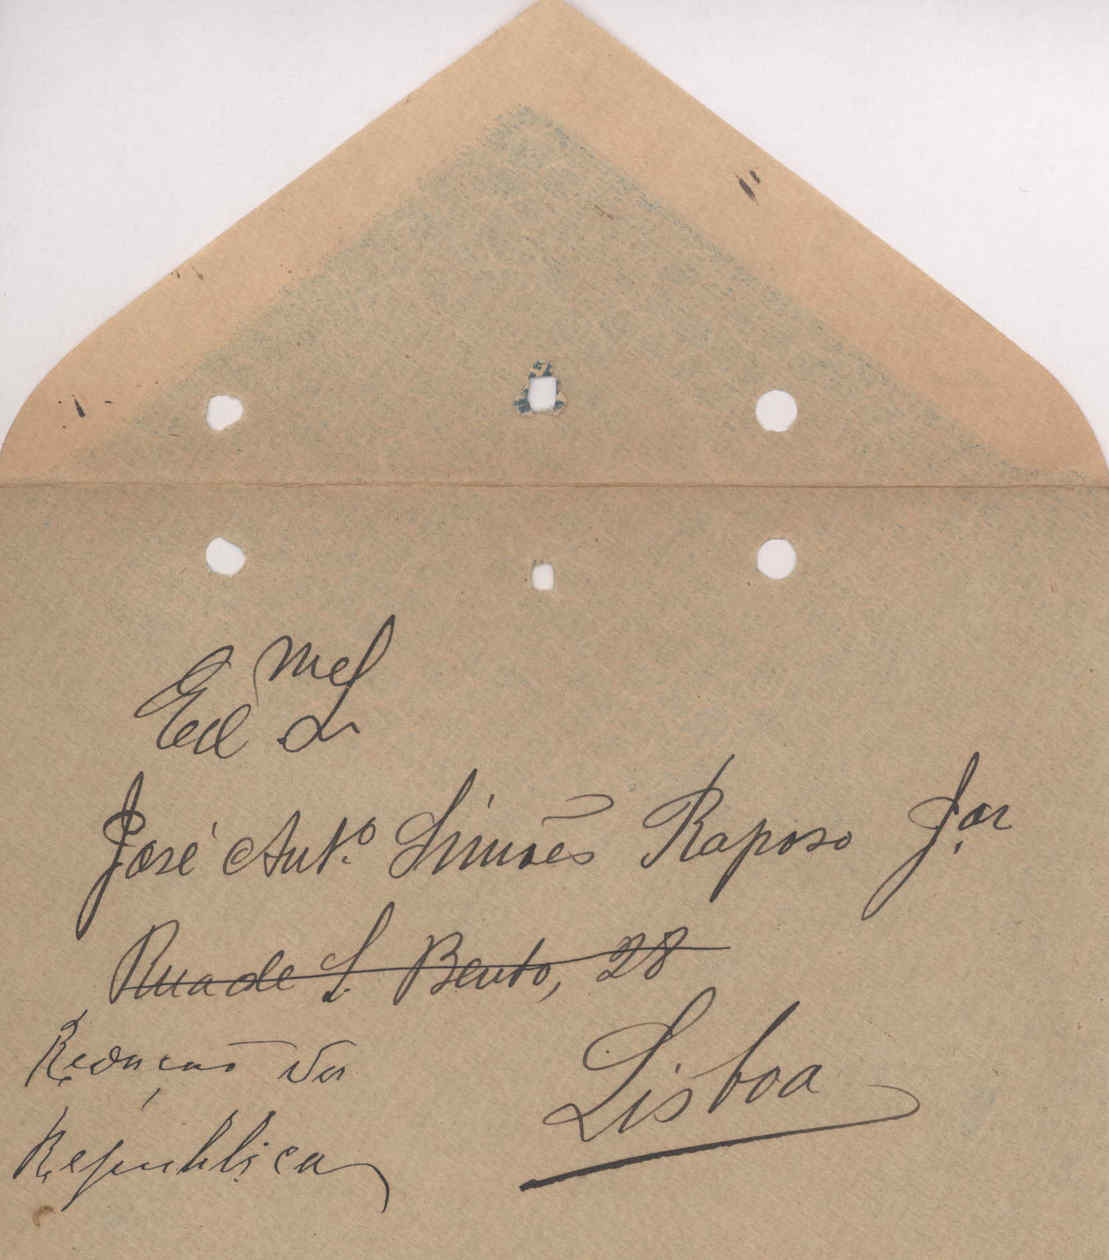 José Ant.º Simões Raposo J.or
Rua de S. Bento, 28
Redação da
República
Lisboa